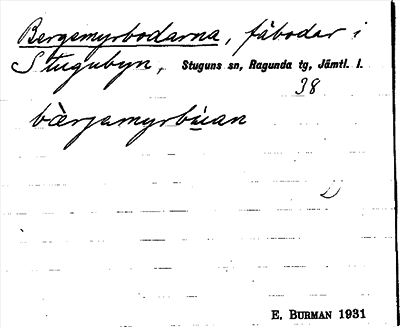 Bergsmyrbodarna, fäbodar i
Stugubyn, Stuguns sn, Ragunda tg, Jämtl. l.
38
bærjsmyrbu̇an
E. BURMAN 1931